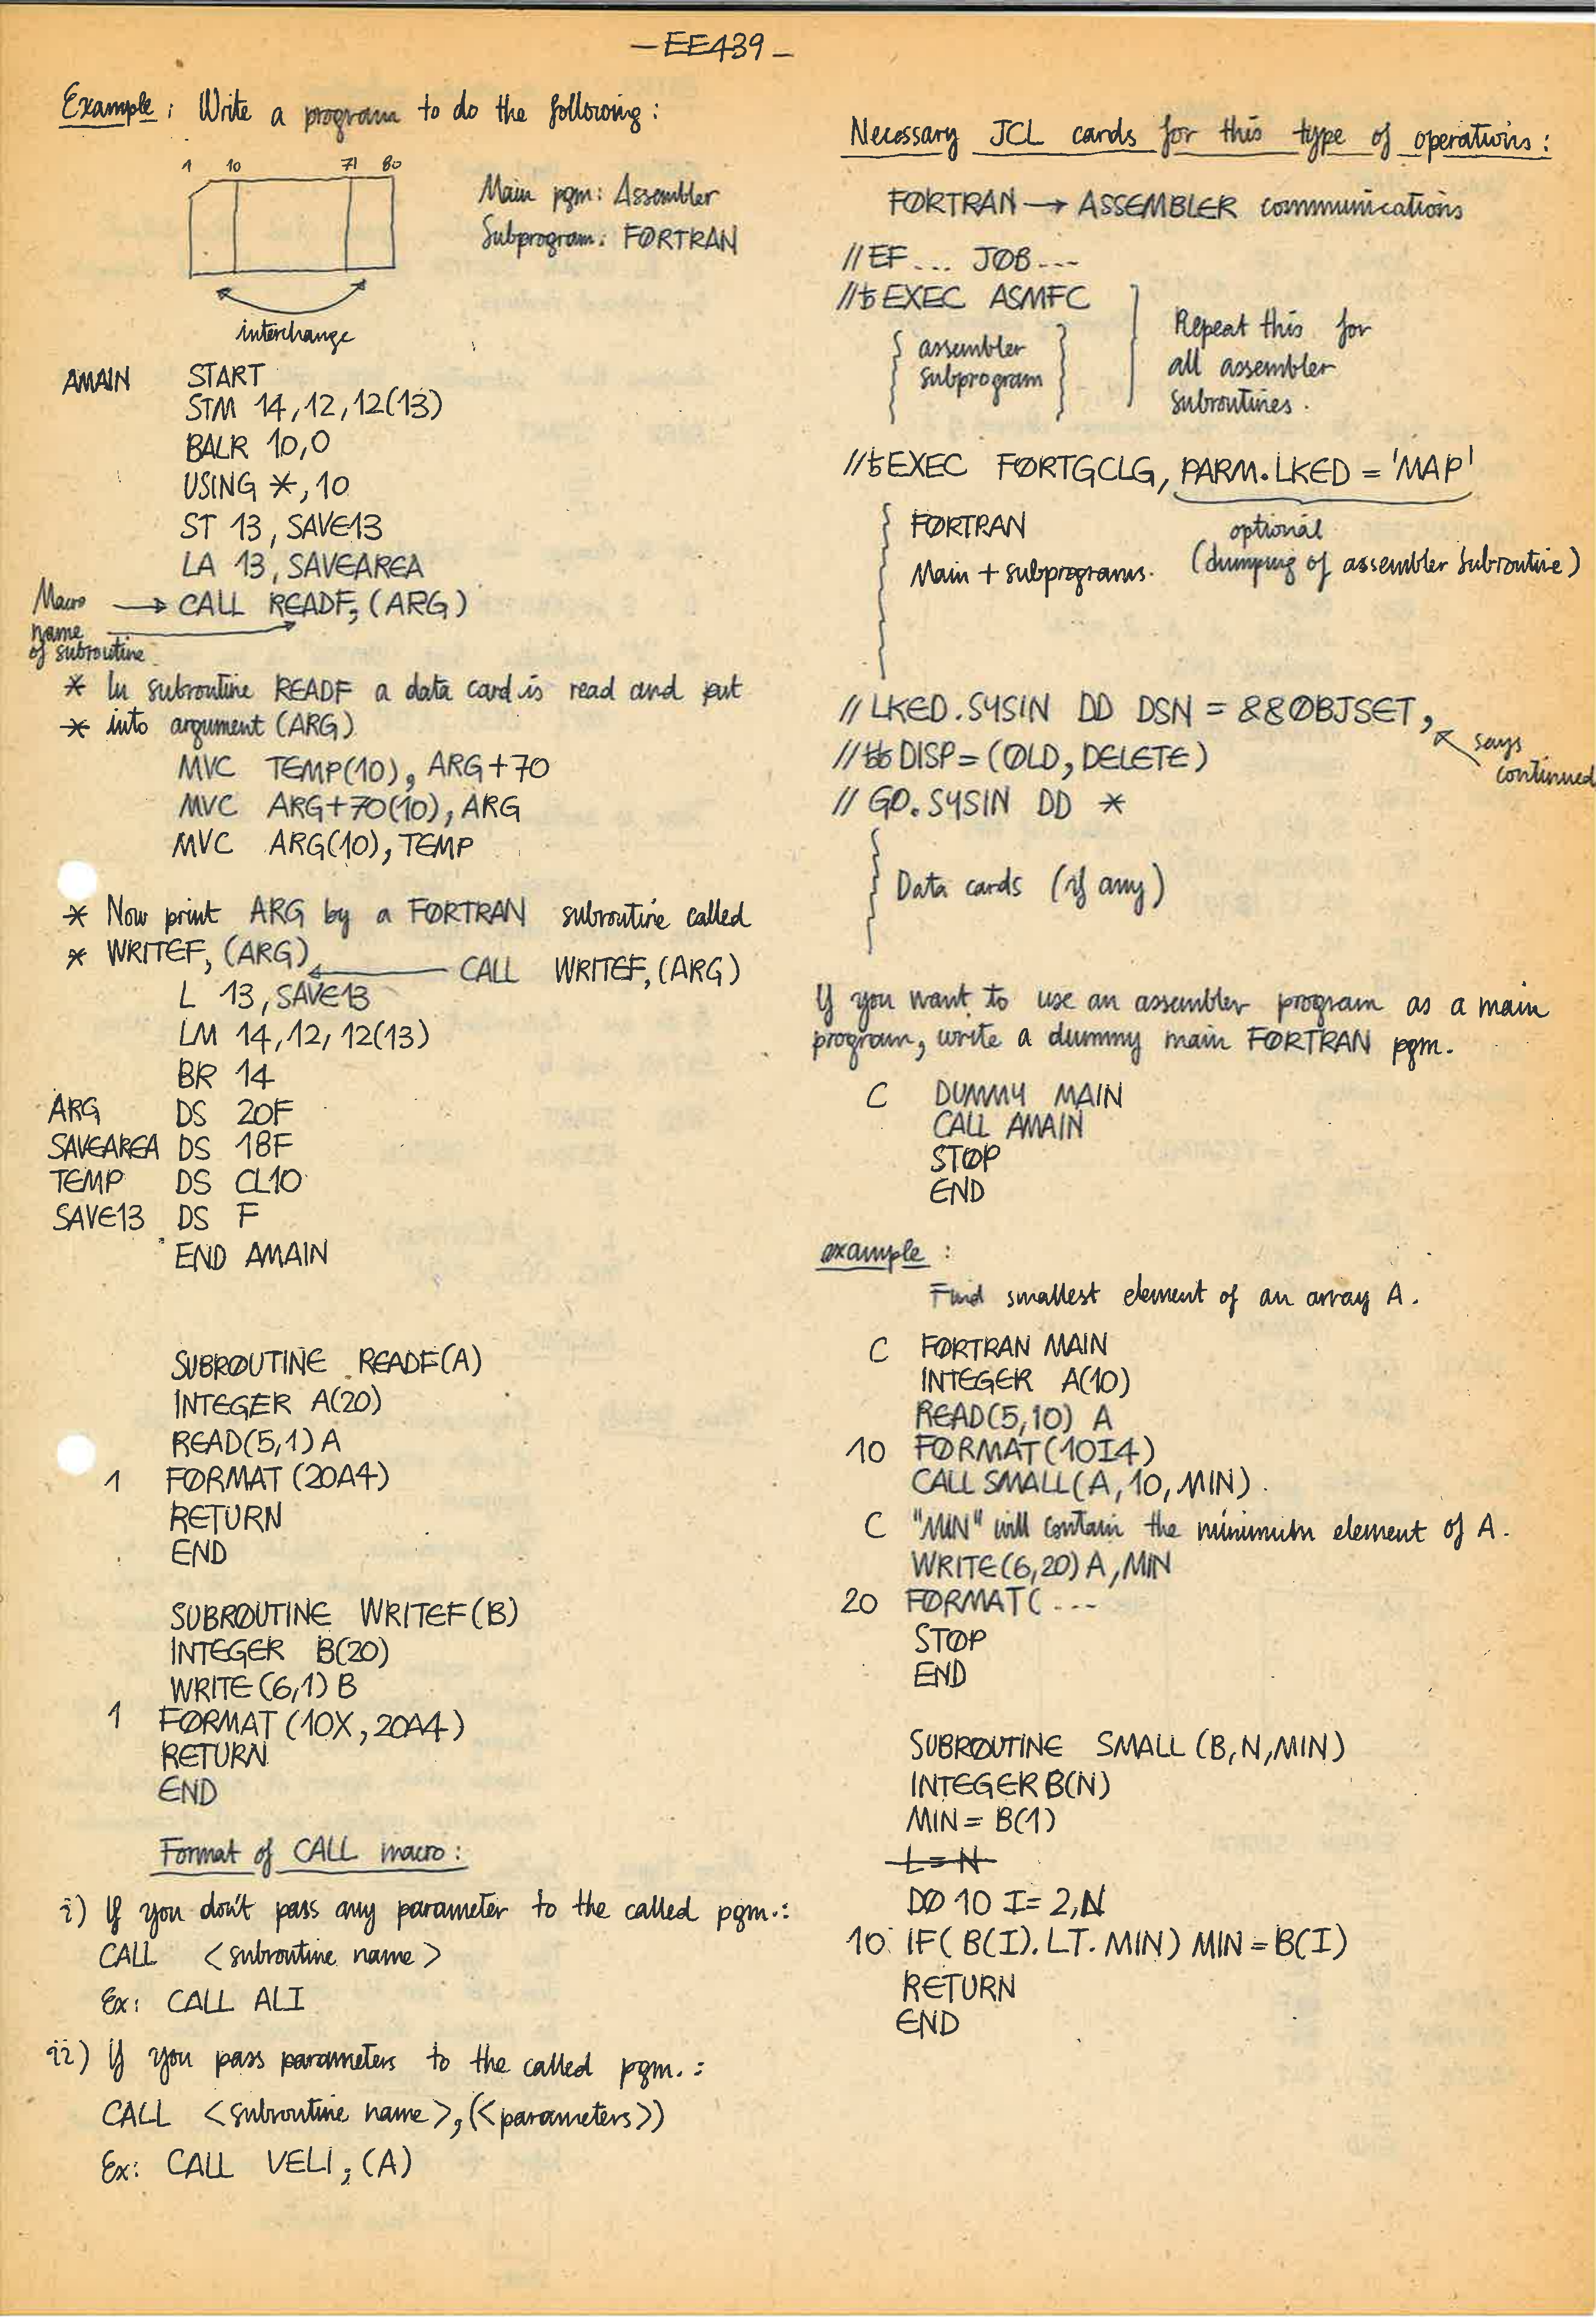 —EE439—
Example: Write a program to do the following:
1 10 71 80
Main pgm: Assembler
Subprogram: FØRTRAN
interchange
AMAIN START
STM 14,12,12(13)
BALR 10,0
USING *,10
ST 13, SAVE13
LA 13, SAVEAREA
Macro → CALL READF,(ARG)
name
of subroutine
* In subroutine READF a data card is read and put
* into argument (ARG)
MVC TEMP(10), ARG+70
MVC ARG+70(10), ARG
MVC ARG(10), TEMP
* Now print ARG by a FØRTRAN subroutine called
* WRITEF, (ARG)
CALL WRITEF,(ARG)
L 13, SAVE13
LM 14,12,12(13)
BR 14
ARG DS 20F
SAVEAREA DS 18F
TEMP DS CL10
SAVE13 DS F
END AMAIN
SUBRØUTINE READF(A)
INTEGER A(20)
READ(5,1) A
1 FØRMAT (20A4)
RETURN
END
SUBRØUTINE WRITEF(B)
INTEGER B(20)
WRITE(6,1) B
1 FØRMAT (10X, 20A4)
RETURN
END
Format of CALL macro:
i) If you don't pass any parameter to the called pgm.:
CALL <subroutine name>
Ex: CALL ALI
ii) If you pass parameters to the called pgm.:
CALL <subroutine name>,(<parameters>)
Ex: CALL VELI,(A)
Necessary JCL cards for this type of operations:
FØRTRAN → ASSEMBLER communications
//EF... JØB---
//ƀEXEC ASMFC
assembler
subprogram
Repeat this for
all assembler
subroutines.
//ƀEXEC FØRTGCLG, PARM.LKED = 'MAP'
FØRTRAN
Main + subprograms.
optional
(dumping of assembler subroutine)
// LKED.SYSIN DD DSN = &&ØBJSET,
says
continued
//ƀƀDISP=(ØLD, DELETE)
// GØ.SYSIN DD *
Data cards (if any)
If you want to use an assembler program as a main
program, write a dummy main FØRTRAN pgm.
C DUMMY MAIN
CALL AMAIN
STØP
END
example:
Find smallest element of an array A.
C FØRTRAN MAIN
INTEGER A(10)
READ(5,10) A
10 FØRMAT(10I4)
CALL SMALL(A,10,MIN).
C "MIN" will contain the minimum element of A.
WRITE(6,20) A,MIN
20 FØRMAT( ---
STØP
END
SUBRØUTINE SMALL (B,N,MIN)
INTEGER B(N)
MIN = B(1)
L=N
DØ 10 I=2,N
10 IF( B(I).LT.MIN) MIN=B(I)
RETURN
END